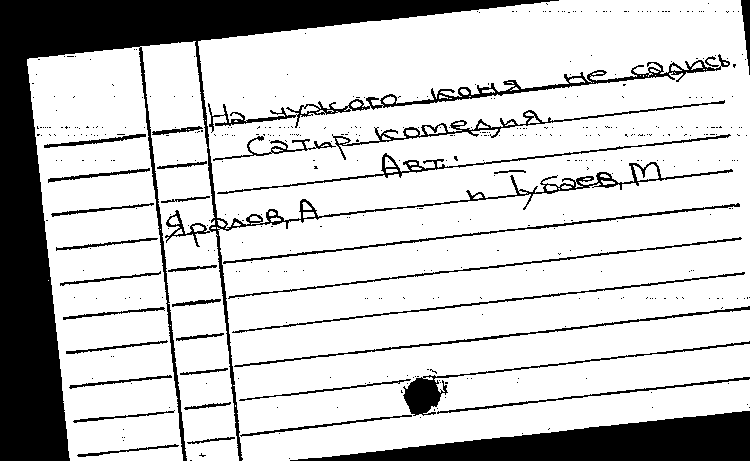 На чужого коня не садись.
Сатир. комедия.
Авт.:
Яралов, А и Тубаев, М